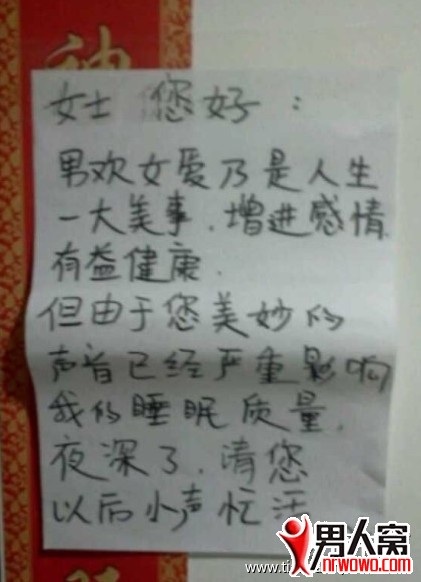 神
女士 您好：
男欢女爱乃是人生
一大美事.增进感情
有益健康.
但由于您美妙的
声音已经严重影响
我的睡眠质量.
夜深了.请您
以后小声忙活
男人窝
nrwowo.com